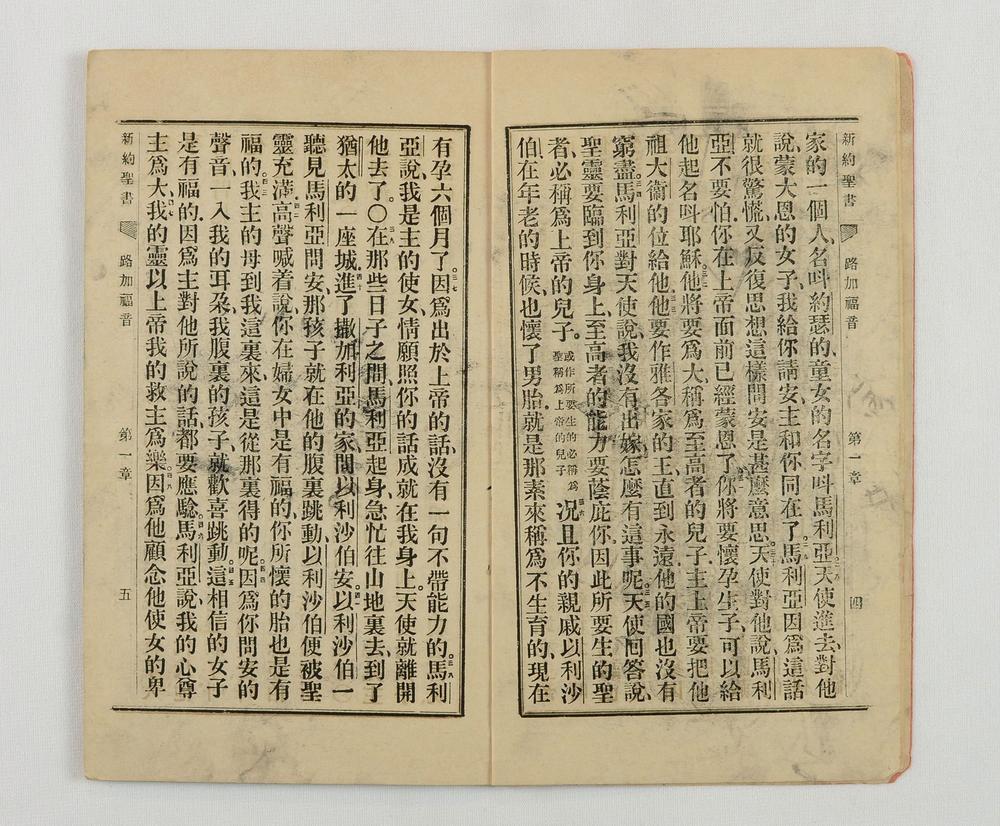 新約聖書 路加福音 第一章 四
家的一個人、名呌約瑟的童女的名字呌馬利亞、天使進去、對他
說、蒙大恩的女子、我給你請安、主和你同在了。馬利亞因爲這話
就很驚慌、又反復思想這樣問安是甚麼意思。天使對他說、馬利
亞、不要怕、你在上帝面前已經蒙恩了。你將要懷孕生子、可以給
他起名呌耶穌。他將要爲大、稱爲至高者的兒子、主上帝要把他
祖大衞的位給他。他要作雅各家的王、直到永遠、他的國也沒有
窮盡。馬利亞對天使說、我沒有出嫁、怎麼有這事呢。天使囘答說、
聖靈要臨到你身上、至高者的能力要蔭庇你、因此所要生的聖
者、必稱爲上帝的兒子。或作所要生的必稱爲聖稱爲上帝的兒子況且你的親戚以利沙
伯、在年老的時候、也懷了男胎、就是那素來稱爲不生育的、現在
有孕六個月了。因爲出於上帝的話、沒有一句不帶能力的。馬利
亞說、我是主的使女、情願照你的話成就在我身上。天使就離開
他去了。〇在那些日子之間、馬利亞起身急忙往山地裏去、到了
猶太的一座城。進了撒加利亞的家、問以利沙伯安。以利沙伯一
聽見馬利亞問安、那孩子就在他的腹裏跳動、以利沙伯便被聖
靈充滿。高聲喊着說、你在婦女中是有福的、你所懷的胎也是有
福的。我主的母到我這裏來、這是從那裏得的呢。因爲你問安的
聲音、一入我的耳朶、我腹裏的孩子、就歡喜跳動。這相信的女子
是有福的、因爲主對他所說的話、都要應驗。馬利亞說、我的心尊
主爲大、我的靈以上帝我的救主爲樂。因爲他顧念他使女的卑
新約聖書 路加福音 第一章 五